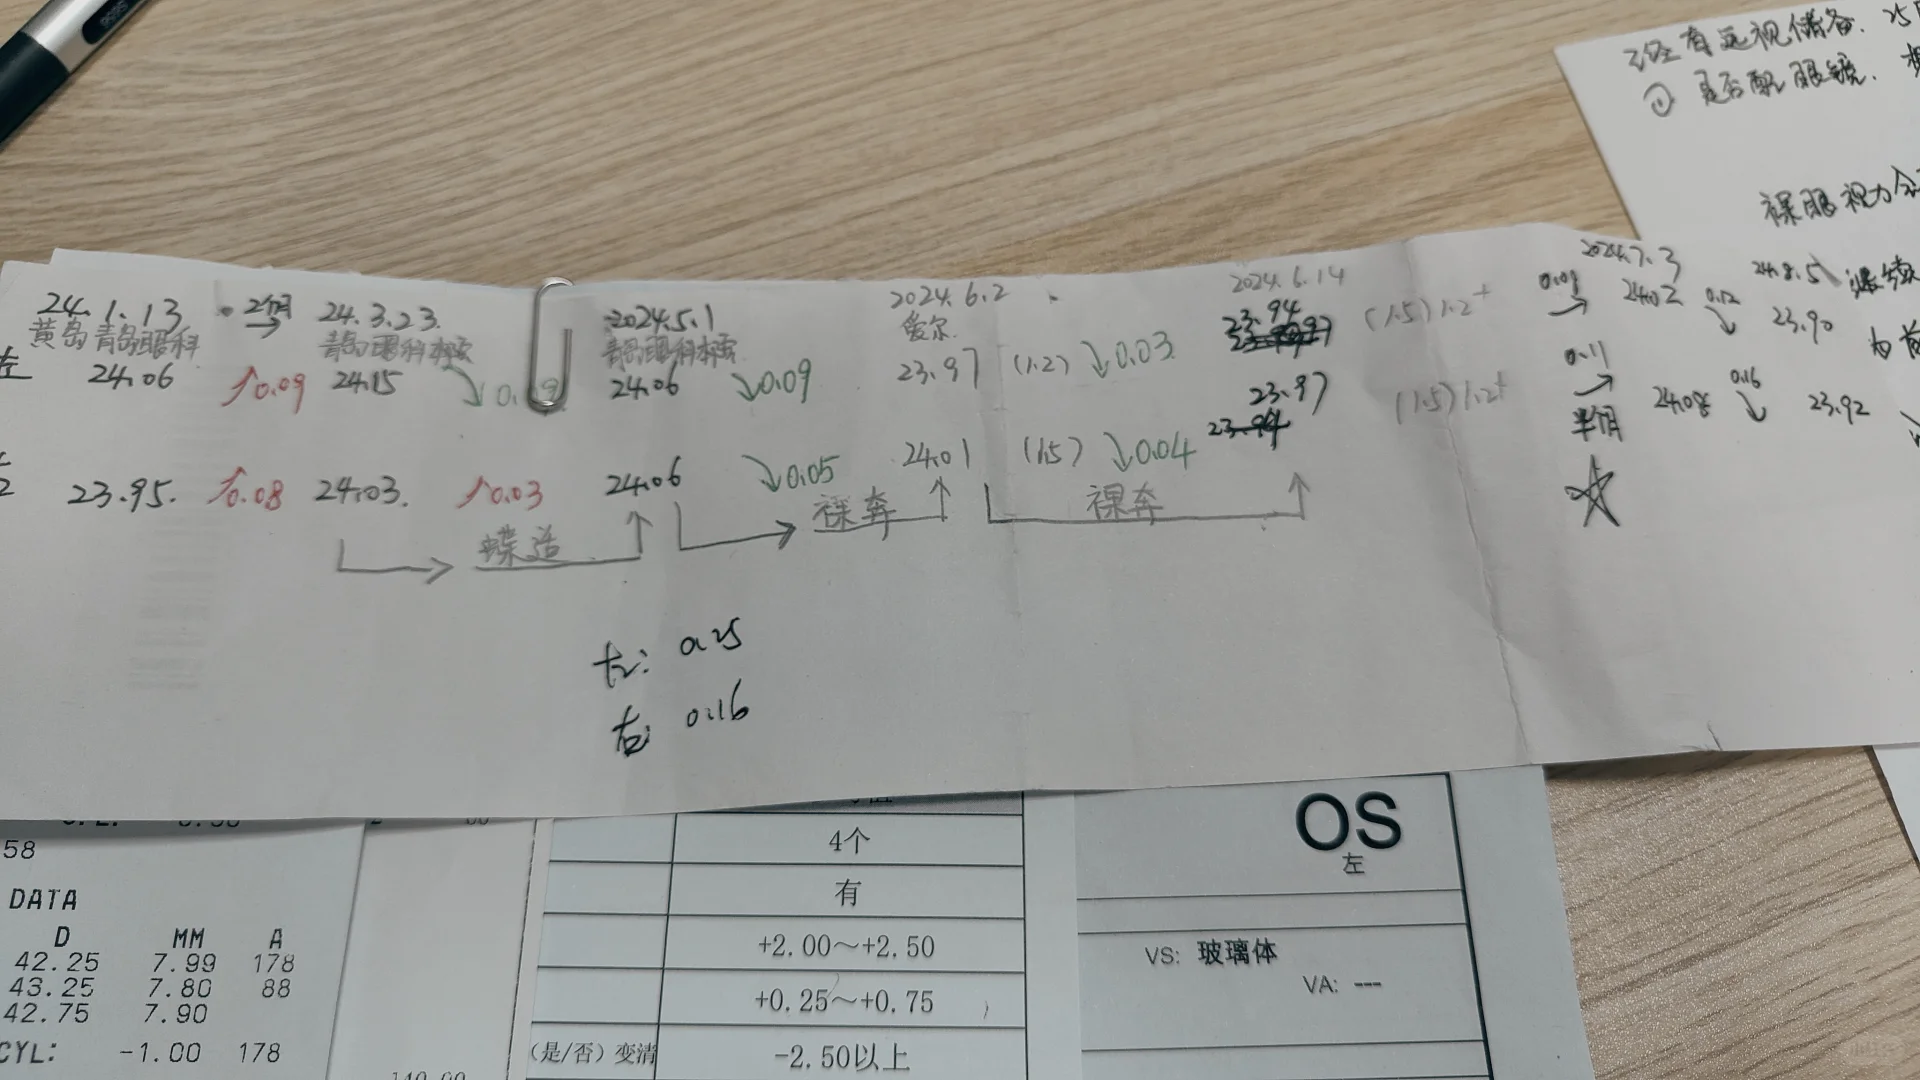 已经有远视储备. 25
① 是否配眼镜.
裸眼视力
24.1.13 2个月 24.3.23. 2024.5.1 2024.6.2 2024.6.14 2024.7.3 24.8.5
黄岛青岛眼科 青岛眼科本部 青岛眼科本部 爱尔.
左 24.06 ↑0.09 24.15 ↘0. 9 24.06 ↘0.09 23.97 (1.2) ↓0.03 23.94 (1.5) 1.2+ 0.09 → 24.02 0.12 ↘ 23.90 为前
23.95. ↑0.08 24.03. ↑0.03 24.06 ↘0.05 24.01 (1.5) ↓0.04 23.97 (1.5) 1.2+ 0.11 → 24.08 0.16 ↓ 23.92
23.94
半个月
裸奔 裸奔
左: 0.25
右: 0.16
58
DATA
D MM A
42.25 7.99 178
43.25 7.80 88
42.75 7.90
CYL: -1.00 178
4个
有
+2.00～+2.50
+0.25～+0.75
(是/否)变清 -2.50以上
OS
左
VS: 玻璃体
VA: ---